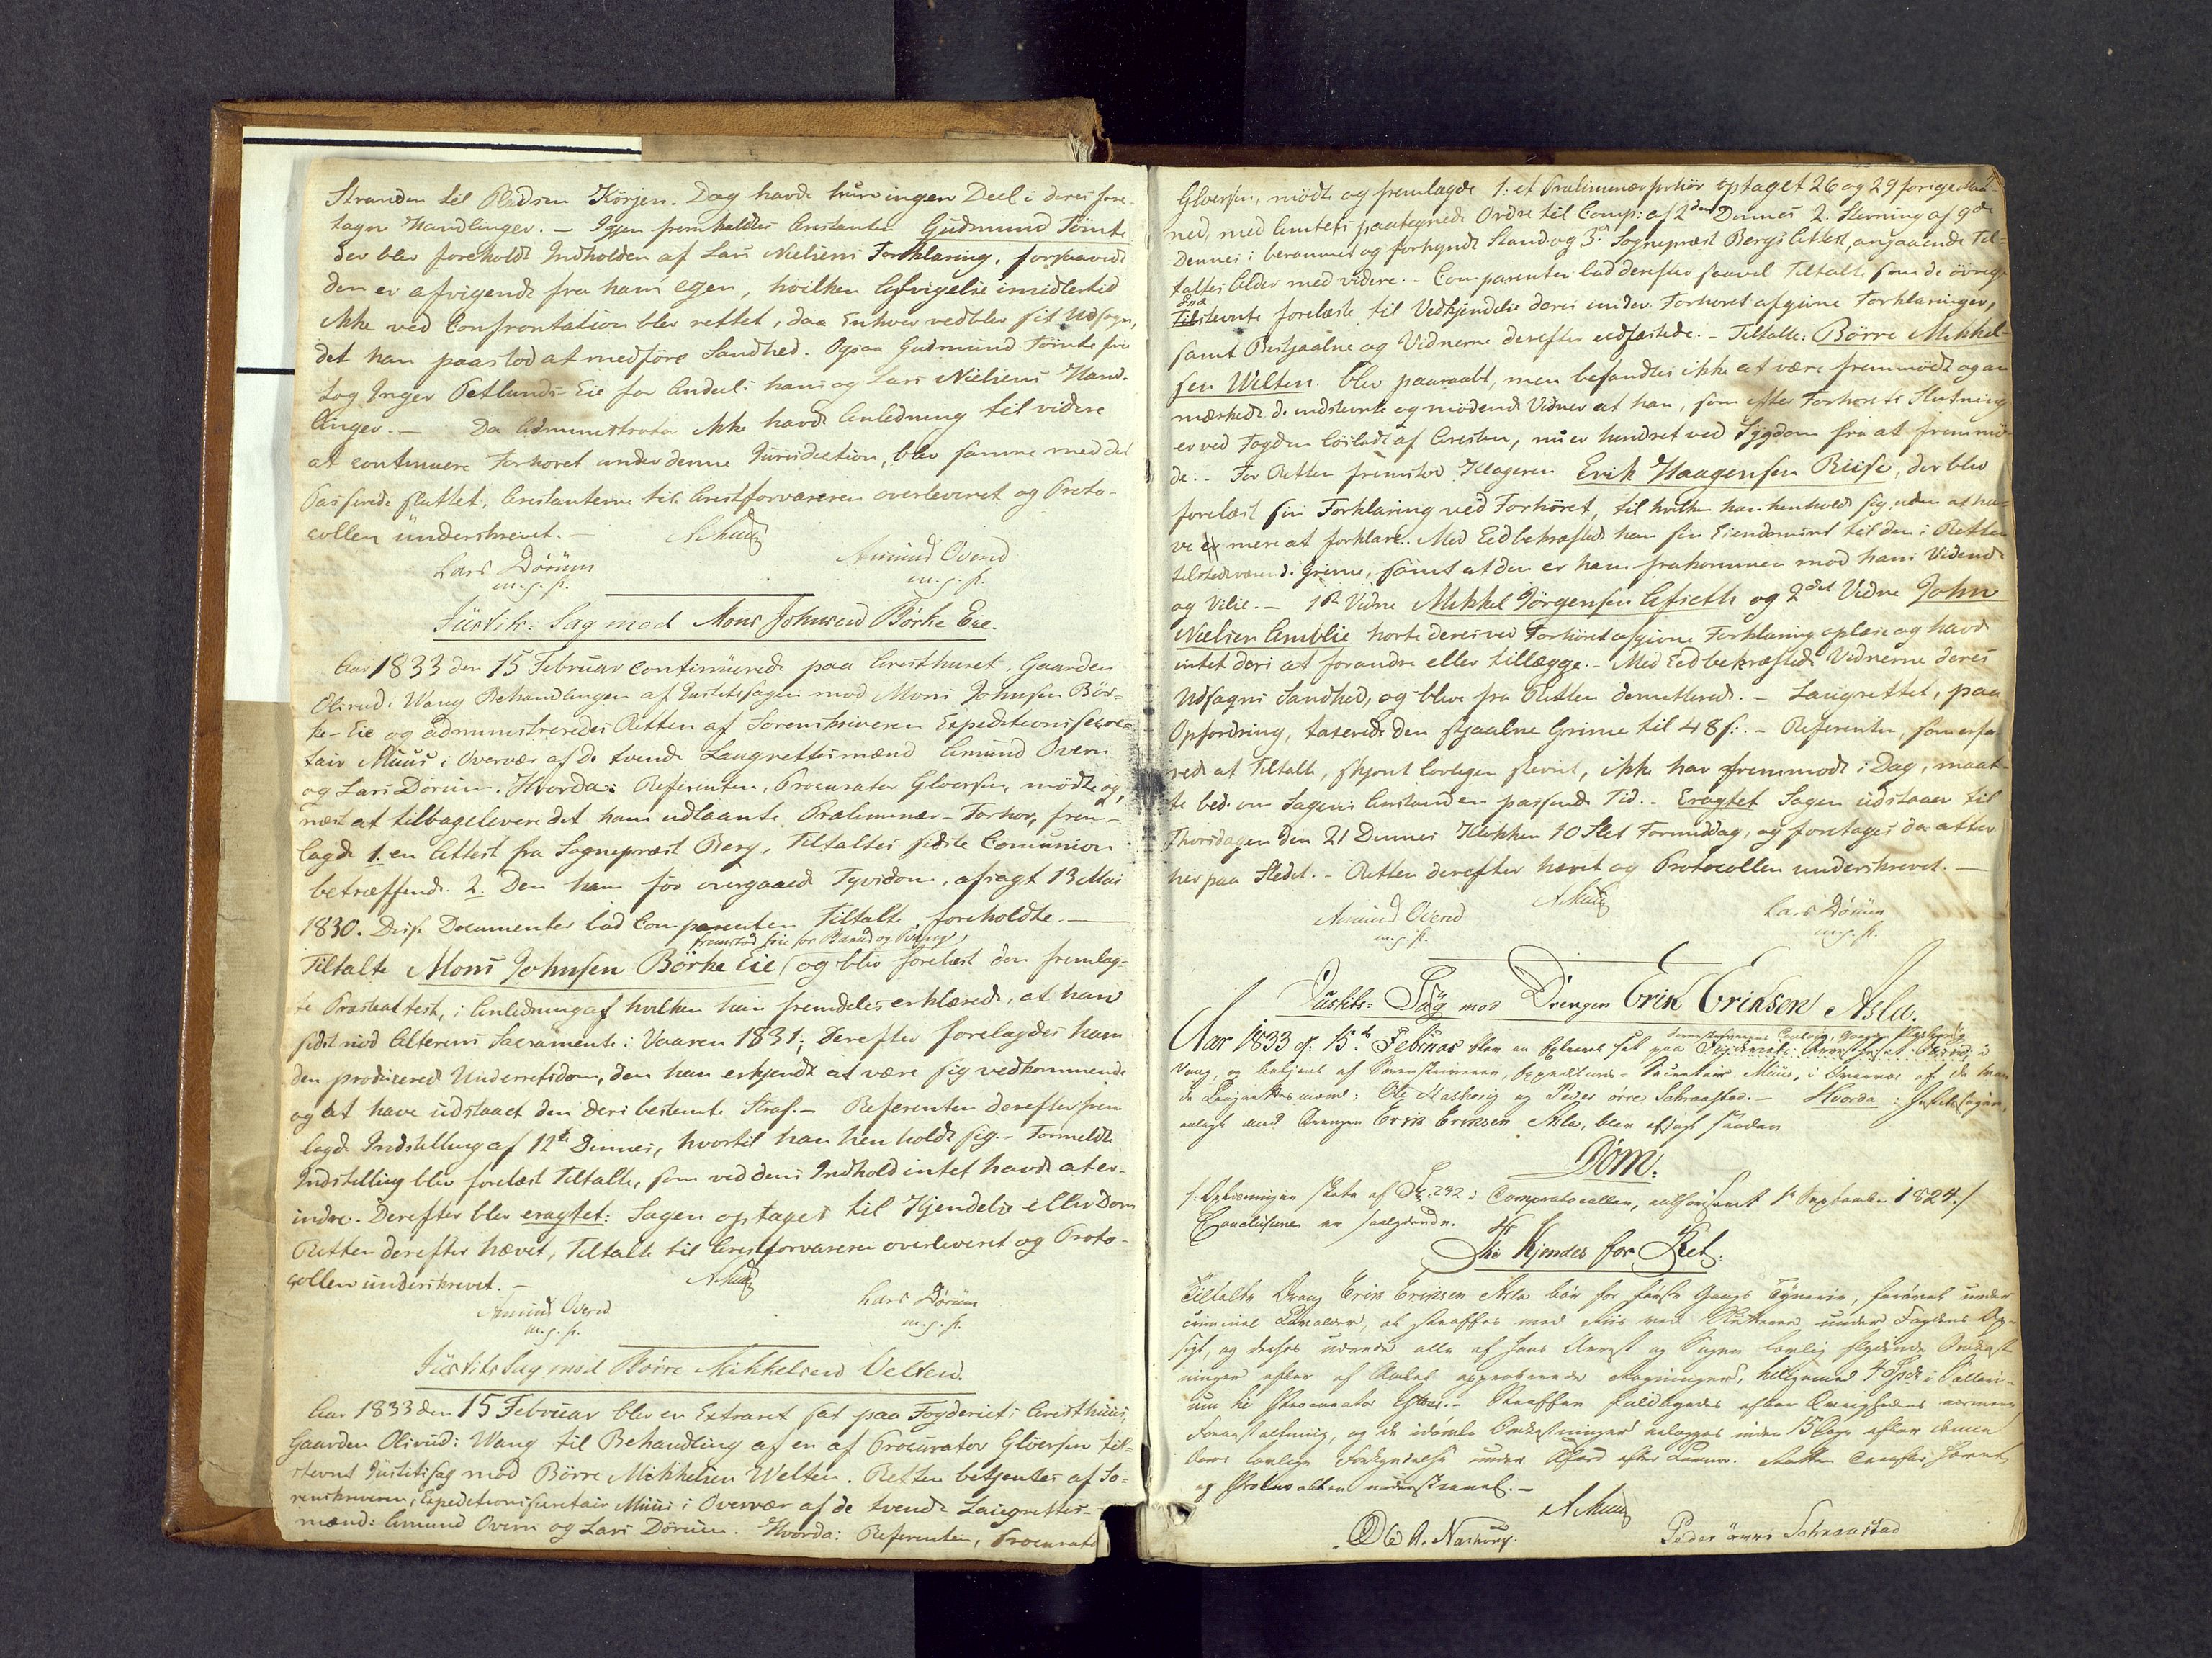 Stranden til Pladsen Körjen. Dog havde hun ingen Deel i deres fore-
tagne Handlinger. – Igjen fremkaldtes Arrestanten Gudmund Tömte
der blev foreholdt Indholden af Lars Nielsens Forklaring, forsaavidt
den er afvigende fra hans egen, hvilken Afvigelse imidlertid
ikke ved Confrontation blev rettet, daa Enhver vedblev sit Udsagn,
det han paastod at medföre Sandhed. Ogsaa Gudmund Tömte fri
tog Inger Petlunds-Eie for Andeel i hans og Lars Nielsens Hand-
linger. – Da Administrator ikke havde Anledning til videre
at continuere Forhöret under denne Jurisdiction, blev samme med det
Passerede sluttet. Arrestanterne til Arrestforvareren overleveret og Proto-
collen underskrevet. –
AMuus
Lars Dörum Amund Overn
m. p. P. m. p. P.
Justits-Sag mod Mons Johnsen Börke Eie.
Aar 1833 den 15 Februar continuerede paa Aresthuset, Gaarden
Olsrud i Wang Behandlingen af Justitssagen mod Mons Johnsen Bör-
ke-Eie og administreredes Retten af Sorenskriveren Expeditionssecre-
tair Muus i Overvær af de tvende Laugrettesmænd Amund Overn
og Lars Dörum. Hvorda: Referenten, Procurator Gloersen, mödte og,
næst at tilbagelevere det ham udlaante Præliminær-Forhör, frem-
lagde 1. en Attest fra Sognepræst Berg, Tiltaltes sidste Comunion
betræffende. 2. Den ham för overgaaed Tyvsdom, afsagt 13 Mai
1830. Disse Documenter lod Comparenten Tiltalte foreholdte. –
fremstod frie for Baand og Tvang,
Tiltalte Mons Johnsen Börke Eie og blev forelæst den fremlag-
te Præsteattest, i Anledning af hvilken han fremdeles erklærede, at han
sidst nöd Alterens Sacramente i Vaaren 1831; Derefter forelagdes ham
den producerede Underretsdom, den han erkjendte at være sig vedkommende
og at have udstaaet den deri bestemte Straf. – Referenten derefter frem
lagde Indstilling af 12te Dennes, hvortil han henholdt sig. – Formeldte
Indstilling blev forelæst Tiltalte, som ved dens Indhold intet havde at er-
indre. Derefter blev eragtet: Sagen optages til Kjendelse eller Dom
Retten derefter hævet, Tiltalte til Arrestforvareren overleveret og Proto-
collen underskrevet. –
AMuus
Amund Overn Lars Dörum
m. p. P. m. p. P.
Justits Sag mod Börre Mikkelsen Velten.
Aar 1833 den 15 Februar blev en Extraret sat paa Fogderiets Aresthuus,
Gaarden Olsrud i Wang til Behandling af en af Procurator Glöersen til-
stevnt Justitssag mod Börre Mikkelsen Welten. Retten betjentes af So-
renskriveren, Expeditionssecretair Muus i Overvær af de tvende Laugrettes-
mænd: Amund Overn og Lars Dörum. Hvorda: Referenten, Procurator
Gloersen, mödte og fremlagde 1. et Præliminærforhör optaget 26 og 29 forige Maa-
ned, med Amtets paategnede Ordre til Comp: af 2den Dennes 2. Stevning af 9de
Dennes i berammet og forkyndt Stand og 3. Sognepræst Bergs Attest, angaaende Til-
taltes Alder med videre. – Comparenten lod derefter saavel Tiltalte som de övrige
Ind
Tilstevnte forelæste til Vedkjendelse deres under Forhöret afgivne Forklaringer,
samt Bestjaalne og Vidnerne derefter eedfæstede. – Tiltalte: Börre Mikkel-
sen Welten. blev paaraabt, men befandtes ikke at være fremmödt og an
mærkede de indstevnte og mödende Vidner at han, som efter Forhörets Slutning
er ved Fogden lösladt af Aresten, nu er hindret ved Sygdom fra at fremmö-
de. – For Retten fremstod Klageren Erik Haagensen Riise, der blev
forelæst sin Forklaring ved Forhöret, til hvilken han henholdt sig, uden at ha-
ve mere at forklare. Med Eed bekræftede han sin Eiendomsret til den i Retten
tilstedeværende Grime, samt at den er ham frakommen mod hans Vidende
og Vilie. – 1ste Vidne Mikkel Jörgensen Afseth og 2det Vidne John
Nielsen Amblie hörte deres ved Forhöret afgivne Forklaring oplæse og havde
intet deri at forandre eller tillægge. – Med Eed bekræftede Vidnerne deres
Udsagns Sandhed, og bleve fra Retten demitterede. – Laugrettet, paa
Opfordring, taxerede den stjaalne Grime til 48 s: – Referenten, som erfa-
rede at Tiltalte, skjönt lovligen stevnt, ikke har fremmödt i Dag, maat-
te bede om Sagens Anstand en passende Tid. – Eragtet Sagen udstaaer til
Thorsdagen den 21 Dennes Klokken 10 Slet Formiddag, og foretages da atter
her paa Stedet. – Retten derefter hævet og Protocollen underskrevet. –
AMuus
Amund Overn Lars Dörum
m. p. P. m. p. P.
Justits-Sag mod Drengen Erik Eriksen Asla.
Aar 1833 d. 15de Februar blev en Extraret sat paa Fogderiets Arresthuset Olsrud, i
Vang, og betjent af Sorenskriveren, Expeditions-Secretair Muus, i Overvær af de tven
de Laugrettesmænd: Ole Nashoug og Peder övre Schraastad. – Hvorda: Justitssagen,
anlagt mod Drengen Erik Eriksen Asla, blev afsagt saadan
Dom:
/: Slutningen staar af Fol. 292 i Domprotocollen, authoriseret 1 September 1824./
Conclusionen er saalydende.
Thi kjendes for Ret:
Tiltalte Dreng Erik Eriksen Asla bör for förste Gangs Tyverie, forövet under
criminel Lavalder, at straffes med Riis ved under Fogdens Op-
sigt, og derhos udrede alle af hans Arrest og Sagen lovlig flydende Omkost
ninger efter af Amtet approberede Regninger, heriagnet 4 Spd. i Sallari-
um til Procurator Gløer. – Straffen fuldbyrdes efter Övrighedens nærmere
Foranstaltning, og de idömte Omkostninger udlægges inden 15 Dage efter denne
Doms lovlige Forkyndelse under Adfærd efter Loven. Retten derefter hævet
og Protocollen underskrevet. –
AMuus
Ole A. Nashoug. Peder övre Schraastad